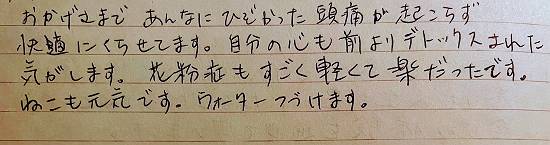 おかげさまで あんなにひどかった 頭痛が 起こらず
快適にくらせてます。自分の心も 前より デトックスされた
気がします。 花粉症も すごく 軽くて 楽だったです。
ねこも元気です。 ウォーターつづけます。